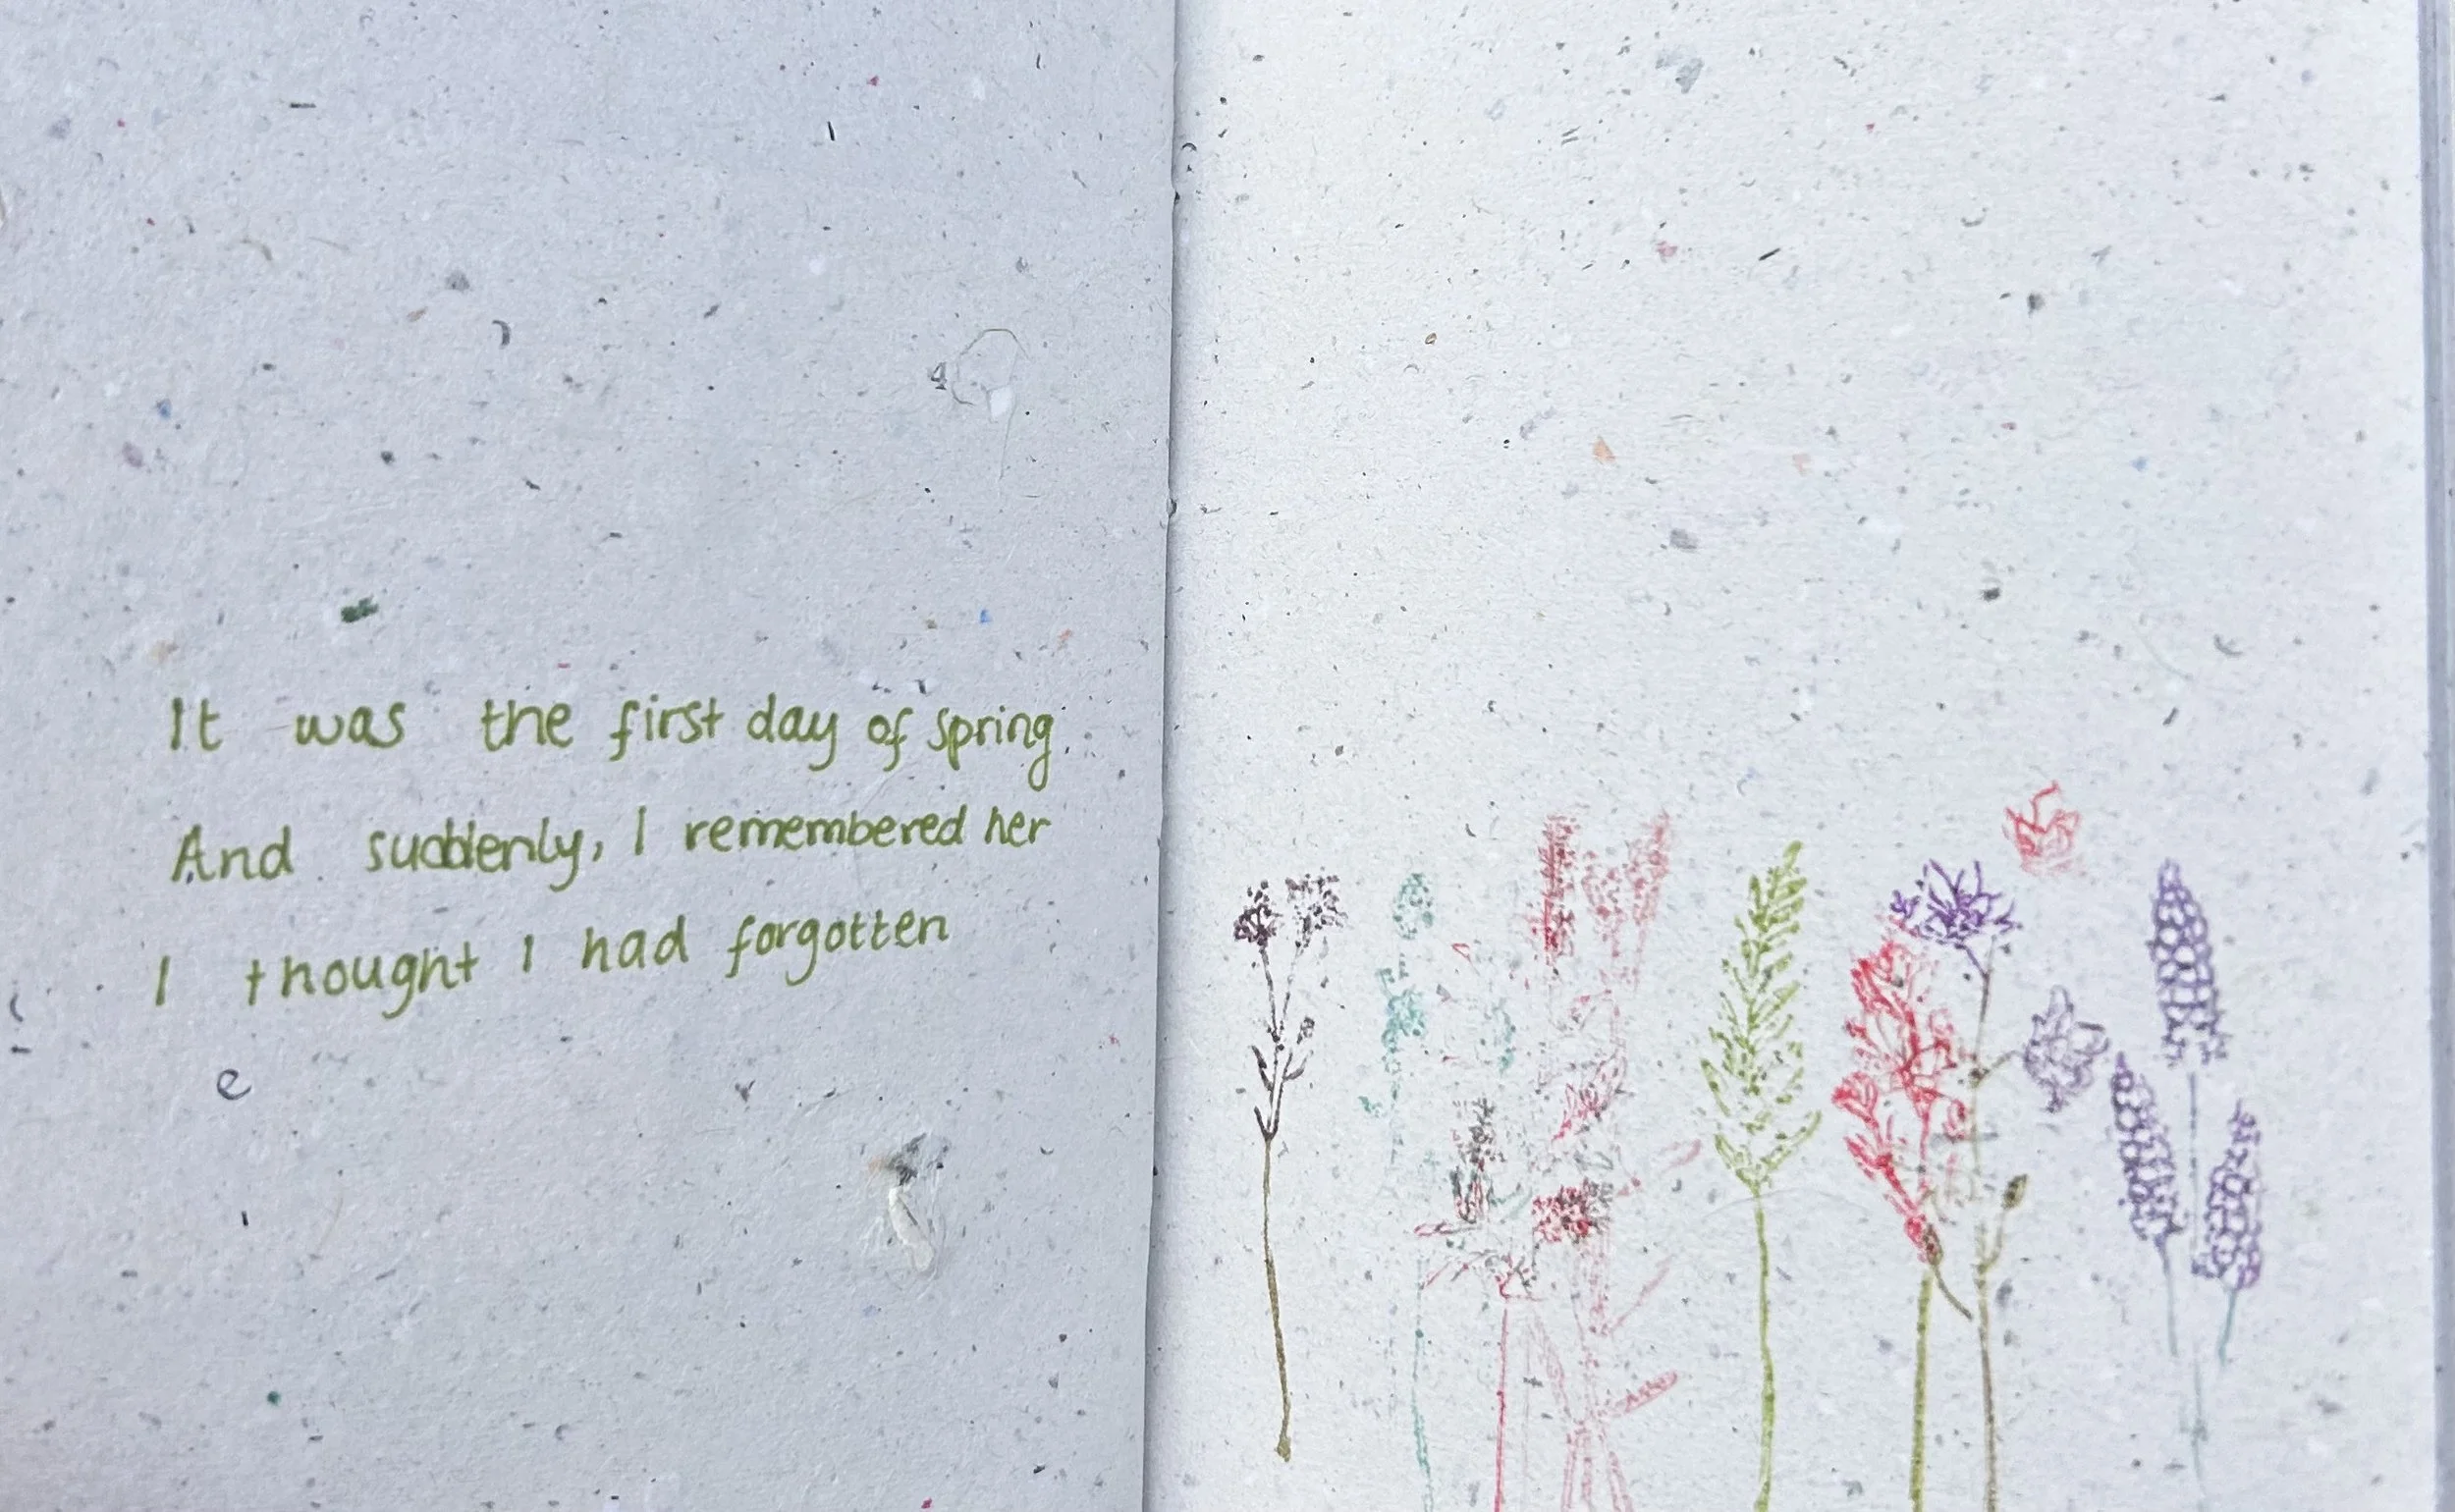 It was the first day of spring
And suddenly, I remembered her
I thought I had forgotten